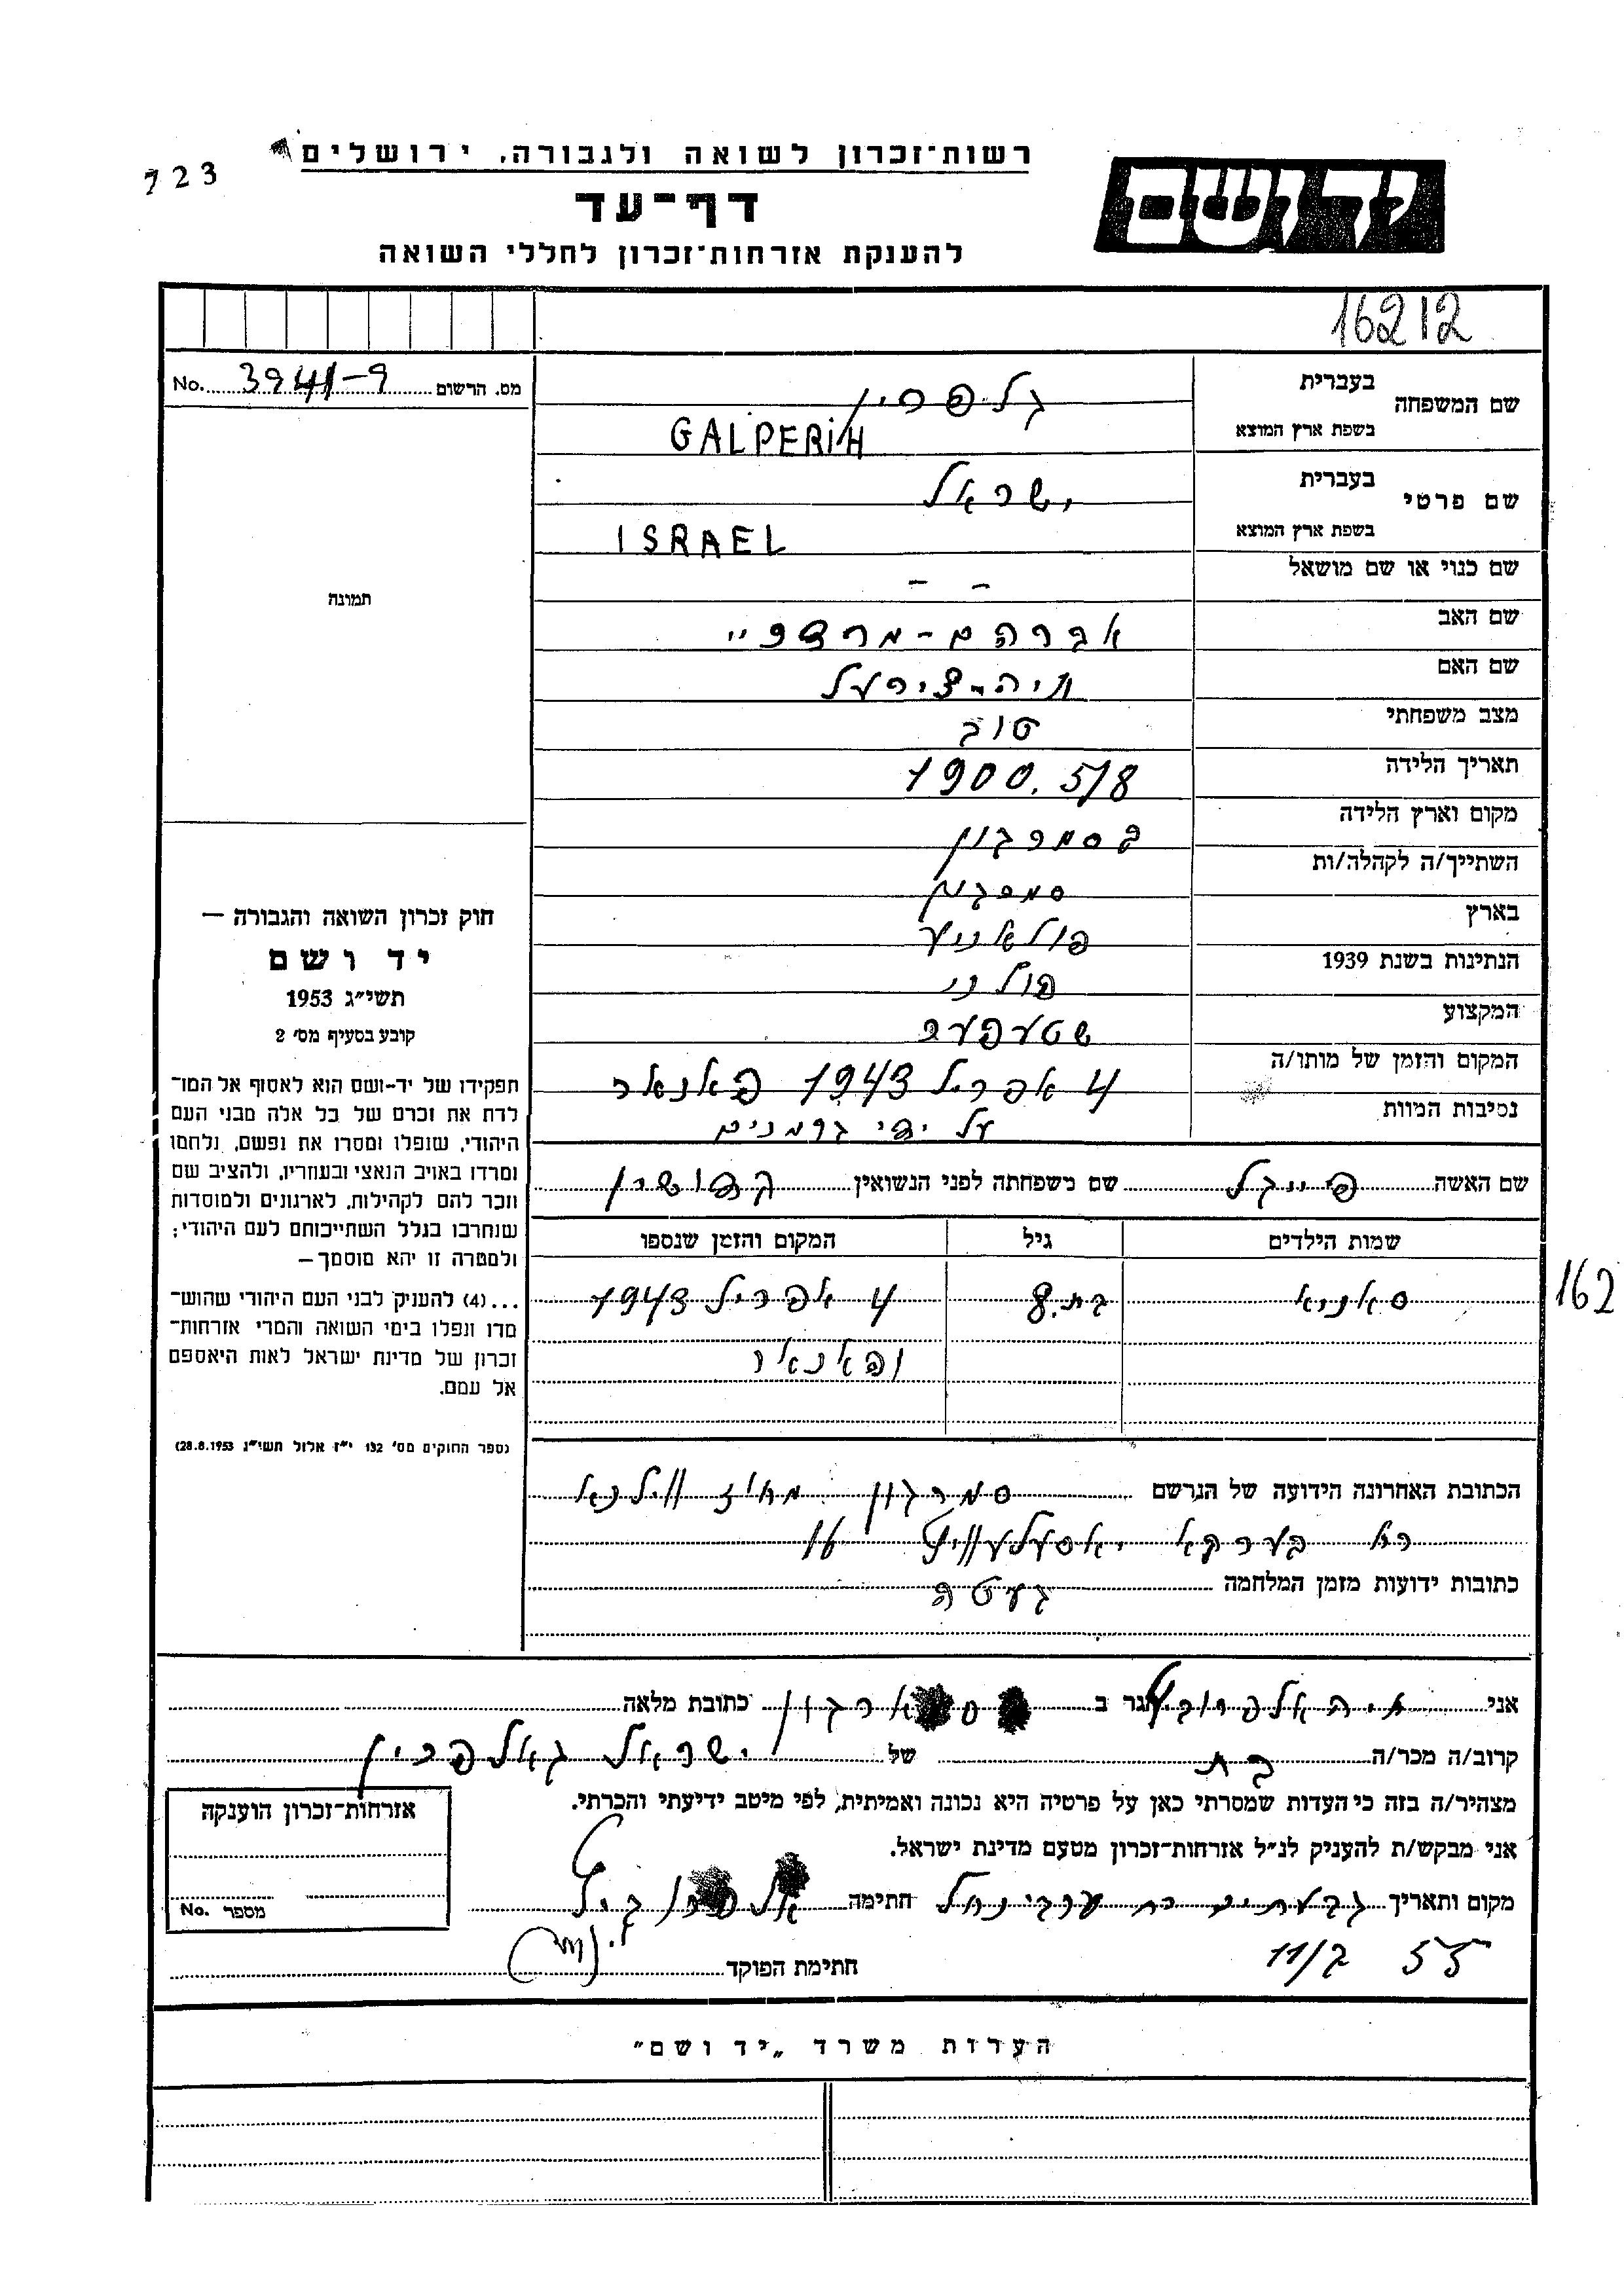 723
רשות־זכרון לשואה ולגבורה, ירושלים
יד ושם
דף־עד
להענקת אזרחות־זכרון לחללי השואה
16212
מס. הרשום 3941-9 No.
שם המשפחה בעברית גלפרין
בשפת ארץ המוצא GALPERIN
שם פרטי בעברית ישראל
בשפת ארץ המוצא ISRAEL
שם כנוי או שם מושאל - -
תמונה
שם האב אברהם-מרדכיי
שם האם
מצב משפחתי טוב
תאריך הלידה 1900. 5/8
מקום וארץ הלידה בסמרגון
השתייך/ה לקהלה/ות סמרגון
בארץ פולאניע
הנתינות בשנת 1939 פולני
המקצוע שטעפער
המקום והזמן של מותו/ה 4 אפריל 1943 פאנאר
נסיבות המוות על ידי גרמנים
חוק זכרון השואה והגבורה —
יד ושם
תשי״ג 1953
קובע בסעיף מס׳ 2
תפקידו של יד-ושם הוא לאסוף אל המו־
לדת את זכרם של כל אלה מבני העם
היהודי, שנפלו ומסרו את נפשם, נלחמו
ומרדו באויב הנאצי ובעוזריו, ולהציב שם
וזכר להם לקהילות, לארגונים ולמוסדות
שנחרבו בגלל השתייכותם לעם היהודי;
ולמטרה זו יהא מוסמך—
...(4) להעניק לבני העם היהודי שהוש־
מדו ונפלו בימי השואה והמרי אזרחות־
זכרון של מדינת ישראל לאות היאספם
אל עמם.
(ספר החוקים מס׳ 132 י״ז אלול תשי״ג 28.8.1953)
שם האשה פייגל שם משפחתה לפני הנשואין
שמות הילדים גיל המקום והזמן שנספו
סאניא בת. 8 4 אפריל 1943
פאנאר
162
הכתובת האחרונה הידועה של הנרשם סמרגון ווילנא
16
כתובות ידועות מזמן המלחמה געטה
אני גר ב כתובת מלאה
קרוב/ה מכר/ה בת של ישראל גאלפרין
מצהיר/ה בזה כי העדות שמסרתי כאן על פרטיה היא נכונה ואמיתית, לפי מיטב ידיעתי והכרתי.
אני מבקש/ת להעניק לנ״ל אזרחות־זכרון מטעם מדינת ישראל.
מקום ותאריך חתימה
55
חתימת הפוקד
אזרחות־זכרון הוענקה
מספר No.
הערות משרד „יד ושם״